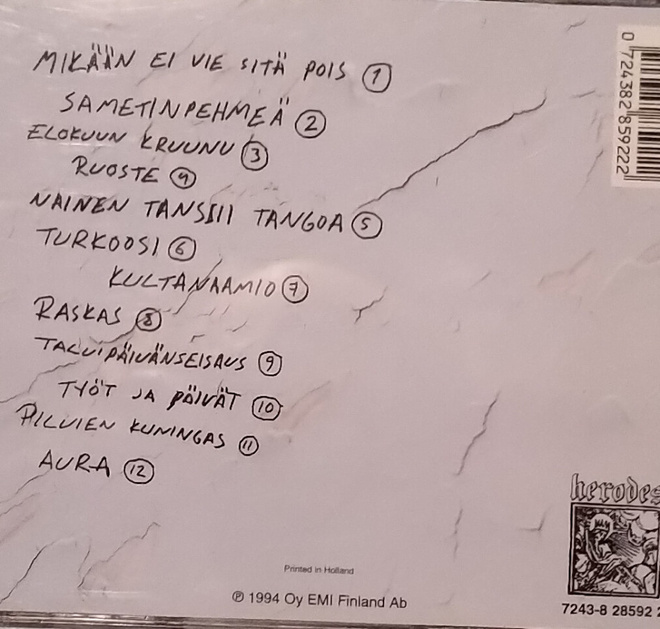 MIKÄÄN EI VIE SITÄ POIS 1
SAMETINPEHMEÄ 2
ELOKUUN KRUUNU 3
RUOSTE 4
NAINEN TANSSII TANGOA 5
TURKOOSI 6
KULTANAAMIO 7
RASKAS 8
TALVIPÄIVÄNSEISAUS 9
TYÖT JA PÄIVÄT 10
PILVIEN KUNINGAS 11
AURA 12
0 724382 859222
herodes
Printed in Holland
℗ 1994 Oy EMI Finland Ab
7243-8 28592 2